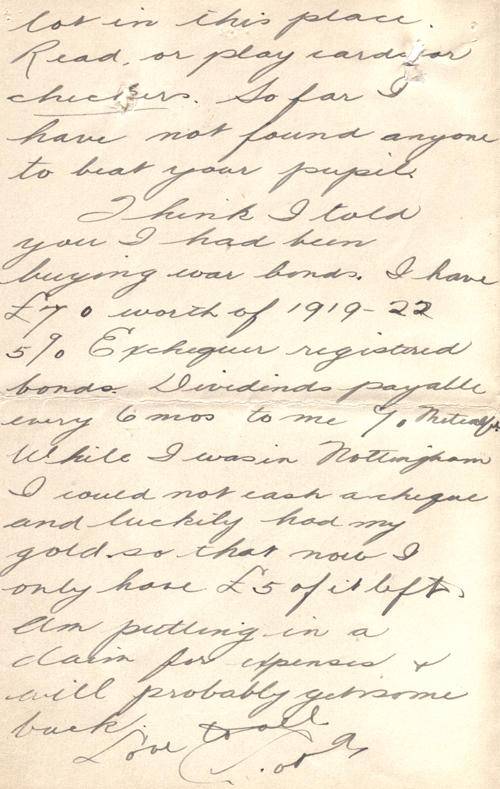 lot in this place.
Read, or play cards or
checkers. So far I
have not found anyone
to beat your pupil.
I think I told
you I had been
buying war bonds. I have
£70 worth of 1919-22
5% Exchequer registered
bonds. Dividends payable
every 6 mos to me %
While I was in Nottingham
I could not cash a cheque
and luckily had my
gold so that now I
only have £5 of it left.
Am putting in a
claim for expenses &
will probably get some
back.
Love to all